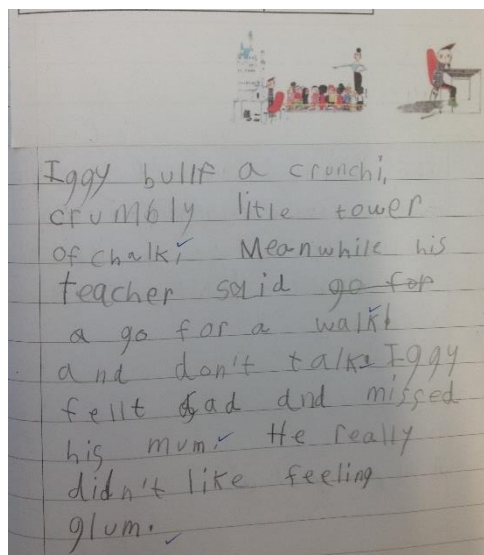 Iggy bulit a crunchi,
crumbly litle tower
of chalk, Meanwhile his
teacher solid go for
a go for a walk!
and don't talk. Iggy
fellt sad and missed
his mum. He really
didn't like feeling
glum.